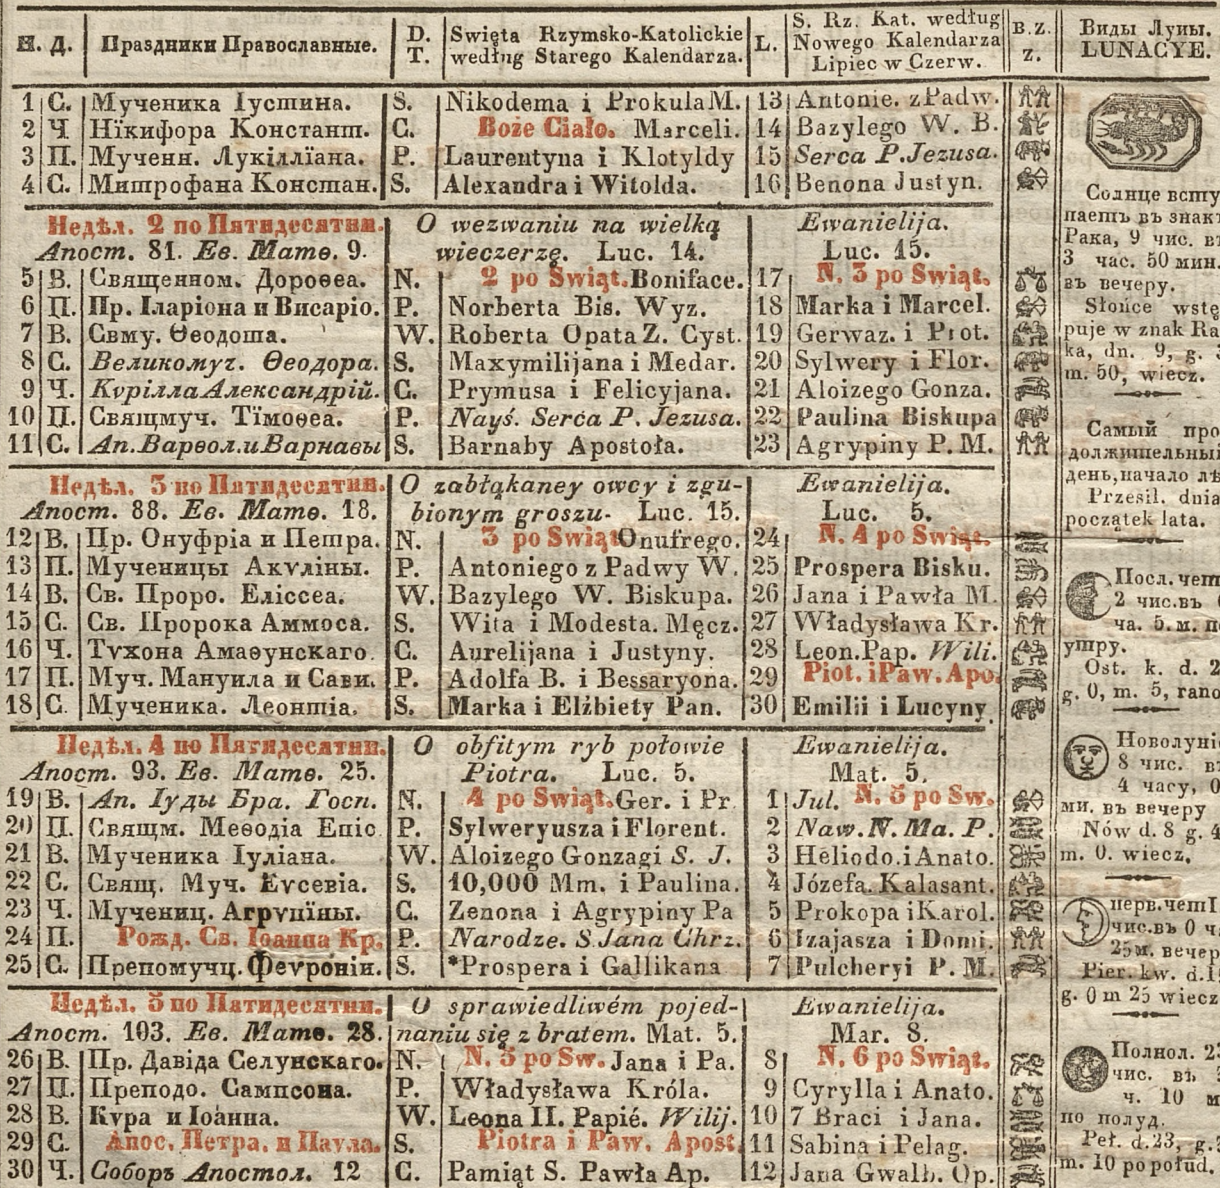 Н. Д. Праздники Православные. D. T. Swięta Rzymsko-Katolickie według Starego Kalendarza. L. S. Rz. Kat. według Nowego Kalendarza Lipiec w Czerw. B.Z. z. Виды Луны. LUNACYE.
1 С. Мученика Іустина. S. Nikodema i Prokula M. 13 Antonie. z Padw.
2 Ч. Нікифора Констант. C. Boże Ciało. Marceli. 14 Bazylego W. B.
3 П. Мученн. Лукілліана. P. Laurentyna i Klotyldy 15 Serca P. Jezusa.
4 С. Митрофана Констан. S. Alexandra i Witolda. 16 Benona Justyn.
Недѣл. 2 по Пятидесятни. O wezwaniu na wielką Ewanielija.
Апост. 81. Ев. Матѳ. 9. wieczerzę. Luc. 14. Luc. 15.
5 В. Священном. Дороѳеа. N. 2 po Swiąt. Boniface. 17 N. 3 po Swiąt.
6 П. Пр. Іларіона и Висаріо. P. Norberta Bis. Wyz. 18 Marka i Marcel.
7 В. Свму. Ѳеодота. W. Roberta Opata Z. Cyst. 19 Gerwaz. i Prot.
8 С. Великомуч. Ѳеодора. S. Maxymilijana i Medar. 20 Sylwery i Flor.
9 Ч. Кѵрилла Александрій. C. Prymusa i Felicyjana. 21 Aloizego Gonza.
10 П. Свящмуч. Тїмоѳеа. P. Nayś. Serca P. Jezusa. 22 Paulina Biskupa
11 С. Ап. Варѳол. и Варнавы S. Barnaby Apostoła. 23 Agrypiny P. M.
Недѣл. 3 по Пятидесятни. O zabłąkaney owcy i zgu- Ewanielija.
Апост. 88. Ев. Матѳ. 18. bionym groszu. Luc. 15. Luc. 5.
12 В. Пр. Онуфріа и Петра. N. 3 po Swiąt Onufrego. 24 N. 4 po Swiąt.
13 П. Мученицы Акѵліны. P. Antoniego z Padwy W. 25 Prospera Bisku.
14 В. Св. Проро. Еліссеа. W. Bazylego W. Biskupa. 26 Jana i Pawła M.
15 С. Св. Пророка Аммоса. S. Wita i Modesta. Męcz. 27 Władysława Kr.
16 Ч. Тѵхона Амаѳунскаго. C. Aurelijana i Justyny. 28 Leon. Pap. Wili.
17 П. Муч. Мануила и Сави. P. Adolfa B. i Bessaryona. 29 Piot. i Paw. Apo.
18 С. Мученика. Леонтіа. S. Marka i Elżbiety Pan. 30 Emilii i Lucyny
Недѣл. 4 по Пятидесятни. O obfitym ryb połowie Ewanielija.
Апост. 93. Ев. Матѳ. 25. Piotra. Luc. 5. Mat. 5.
19 В. Ап. Іуды Бра. Госп. N. 4 po Swiąt. Ger. i Pr 1 Jul. N. 5 po Sw.
20 П. Свящм. Меѳодіа Епіс P. Sylweryusza i Florent. 2 Naw. N. Ma. P.
21 В. Мученика Іуліана. W. Aloizego Gonzagi S. J. 3 Heliodo. i Anato.
22 С. Свящ. Муч. Еѵсевіа. S. 10,000 Mm. i Paulina. 4 Józefa. Kalasant.
23 Ч. Мучениц. Агрѵпїны. C. Zenona i Agrypiny Pa 5 Prokopa i Karol.
24 П. Рожд. Св. Іоанна Кр. P. Narodze. S. Jana Chrz. 6 Izajasza i Domi.
25 С. Препомучц. Феѵроніи. S. *Prospera i Gallikana 7 Pulcheryi P. M.
Недѣл. 5 по Пятидесятни. O sprawiedliwém pojed- Ewanielija.
Апост. 103. Ев. Матѳ. 28. naniu się z bratem. Mat. 5. Mar. 8.
26 В. Пр. Давіда Селунскаго. N. N. 5 po Sw. Jana i Pa. 8 N. 6 po Swiąt.
27 П. Преподо. Сампсона. P. Władysława Króla. 9 Cyrylla i Anato.
28 В. Кѵра и Іоанна. W. Leona II. Papié. Wilij. 10 7 Braci i Jana.
29 С. Апос. Петра. и Паула. S. Piotra i Paw. Apost. 11 Sabina i Pelag.
30 Ч. Соборъ Апостол. 12 C. Pamiąt S. Pawła Ap. 12 Jana Gwalb. Op.
Солнце всту
паетъ въ знакъ
Рака, 9 чис. въ
3 час. 50 мин.
въ вечеру.
Słońce wstę
puje w znak Ra
ka, dn. 9, g. 3
m. 50, wiecz.
Самый про
должительный
день, начало лѣ
Przesil. dnia
początek lata.
Посл. чет
2 чис. въ
ча. 5. м. по
утру.
Ost. k. d. 2
g. 0, m. 5, rano
Новолуніе
8 чис. въ
4 часу, 0
ми. въ вечеру
Nów d. 8 g. 4
m. 0. wiecz.
перв. чет
чис. въ 0 ча
25 м. вечер
Pier. kw. d. 1
g. 0 m 25 wiecz
Полнол. 23
чис. въ
ч. 10 м
по полуд.
Peł. d. 23, g.
m. 10 po połud.